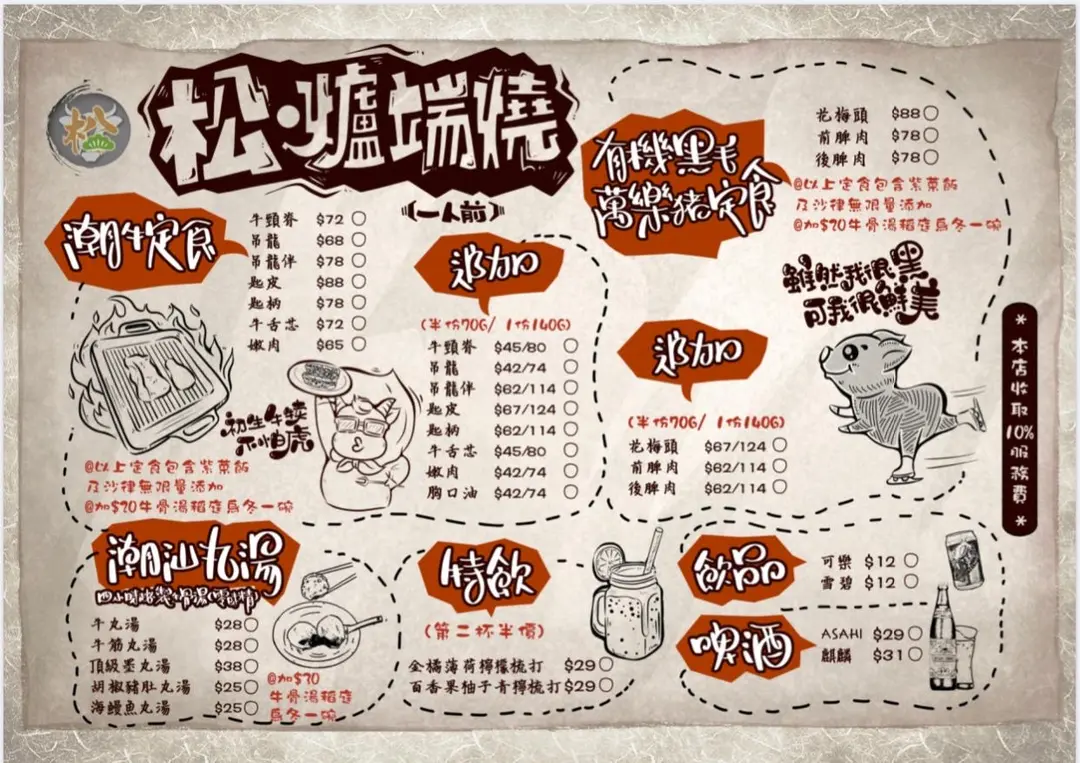 松
松·爐端燒
(一人前)
潮牛定食
牛頸脊 $72
吊龍 $68
吊龍伴 $78
匙皮 $88
匙柄 $78
牛舌芯 $72
嫩肉 $65
初生牛犢
不怕虎
@以上定食包含紫菜飯
及沙律無限量添加
@加$20牛骨湯稻庭烏冬一碗
追加
(半份70G/ 1份140G)
牛頸脊 $45/80
吊龍 $42/74
吊龍伴 $62/114
匙皮 $67/124
匙柄 $62/114
牛舌芯 $45/80
嫩肉 $42/74
胸口油 $42/74
有機黑毛
萬樂豬定食
花梅頭 $88
前脾肉 $78
後脾肉 $78
@以上定食包含紫菜飯
及沙律無限量添加
@加$20牛骨湯稻庭烏冬一碗
雖然我很黑
可我很鮮美
追加
(半份70G/ 1份140G)
花梅頭 $67/124
前脾肉 $62/114
後脾肉 $62/114
*本店收取10%服務費*
潮汕丸湯
牛丸湯 $28
牛筋丸湯 $28
頂級墨丸湯 $38
胡椒豬肚丸湯 $25
海鰻魚丸湯 $25
@加$20
牛骨湯稻庭
烏冬一碗
特飲
(第二杯半價)
金橘薄荷檸檬梳打 $29
百香果柚子青檸梳打 $29
飲品
可樂 $12
雪碧 $12
啤酒
ASAHI $29
麒麟 $31